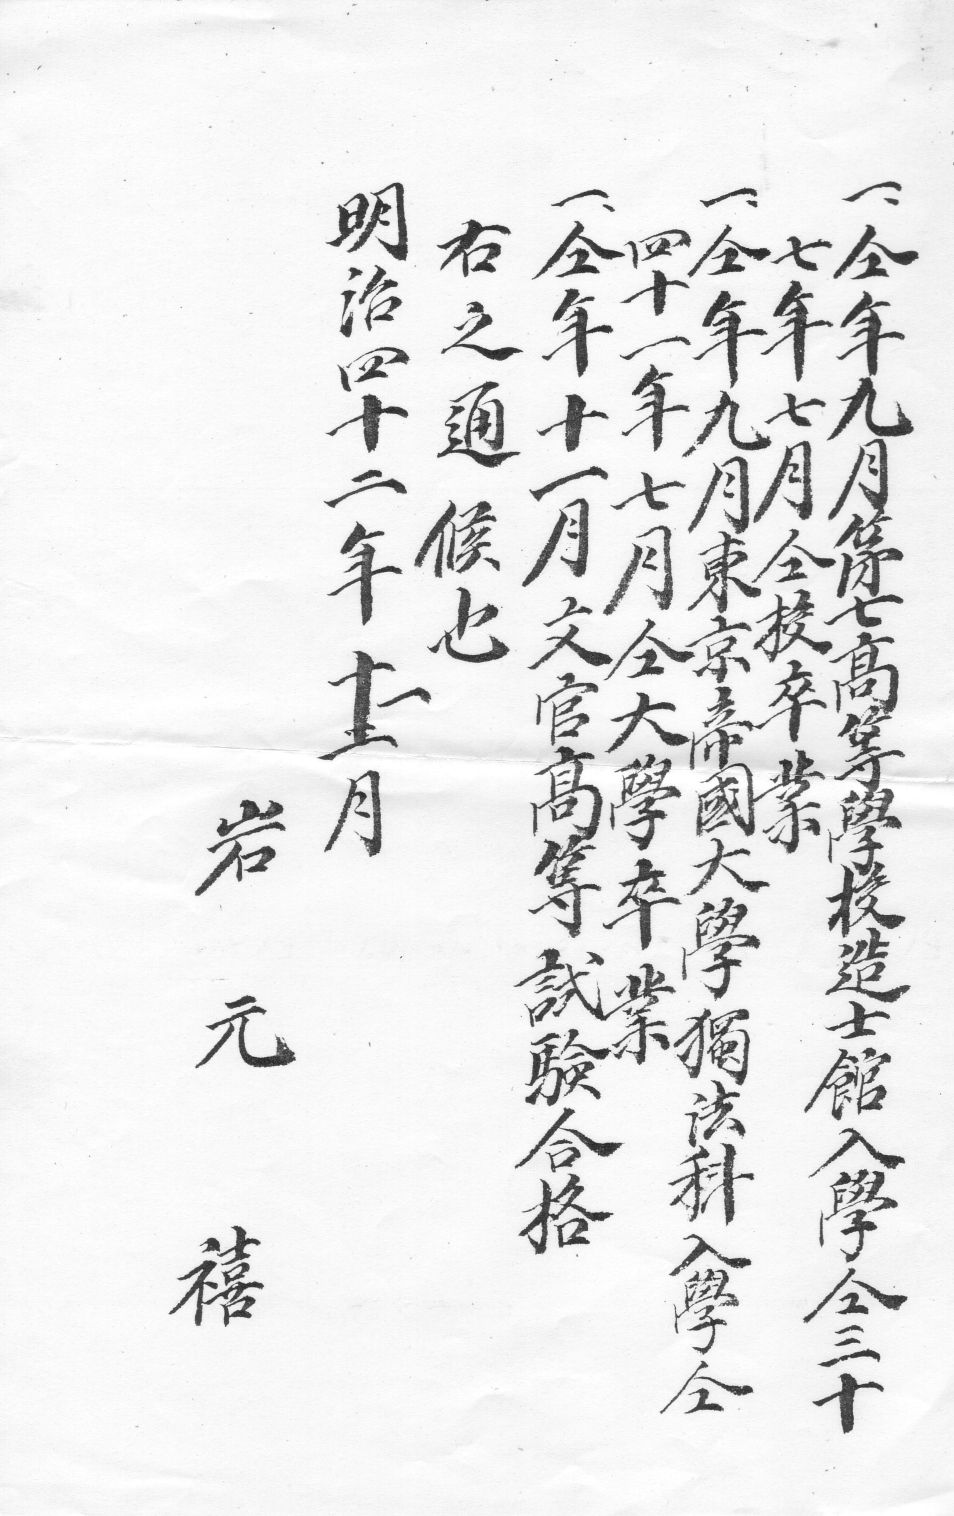 一、仝年九月第七髙等學校造士館入學仝三十
七年七月仝校卒業
一、仝年九月東京帝國大學獨法科入學仝
四十一年七月仝大學卒業
一、仝年十一月文官髙等試験合格
右之通候也
明治四十二年 月
岩元禧